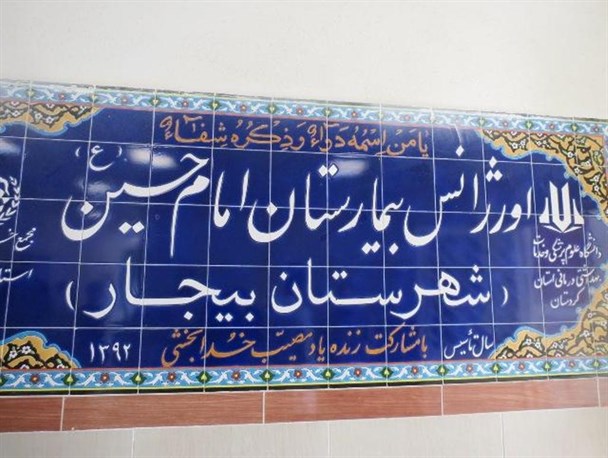 یا مَن اِسمُهُ دَواءٌ وَ ذِکرُهُ شِفاءٌ
اورژانس بیمارستان امام حسین (ع)
(شهرستان بیجار)
با مشارکت زنده یاد مصیب خدابخشی
سال تأسیس
۱۳۹۲
دانشگاه علوم پزشکی و خدمات
بهداشتی درمانی استان
کردستان
مجمع